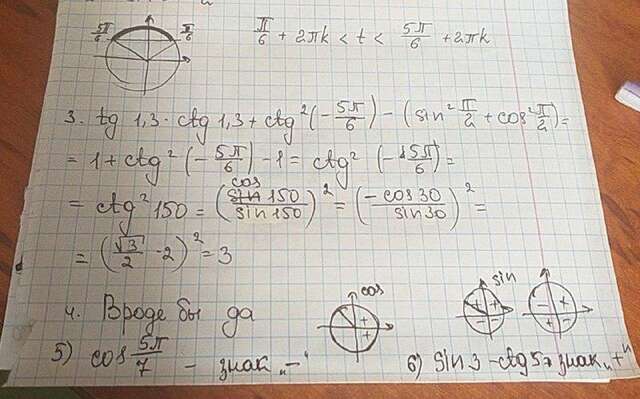 5π/6 π/6 π/6 + 2πk < t < 5π/6 + 2πk
3. tg 1,3 · ctg 1,3 + ctg²(-5π/6) - (sin² π/2 + cos² π/2) =
= 1 + ctg²(-5π/6) - 1 = ctg²(-5π/6) =
= ctg² 150 = (cos 150 / sin 150)² = (-cos 30 / sin 30)² =
= (√3/2 · 2)² = 3
4. Вроде бы да cos sin
5) cos 5π/7 - знак „-“ 6) sin 3 - ctg 5 > знак „+“